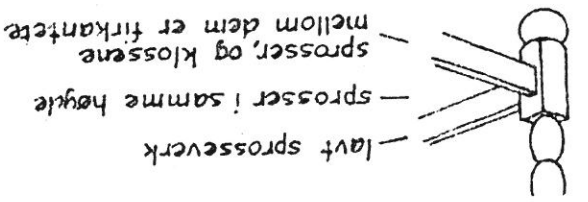 lavt sprosseverk
sprosser i samme høyde
sprosser, og klossene
mellom dem er firkantete